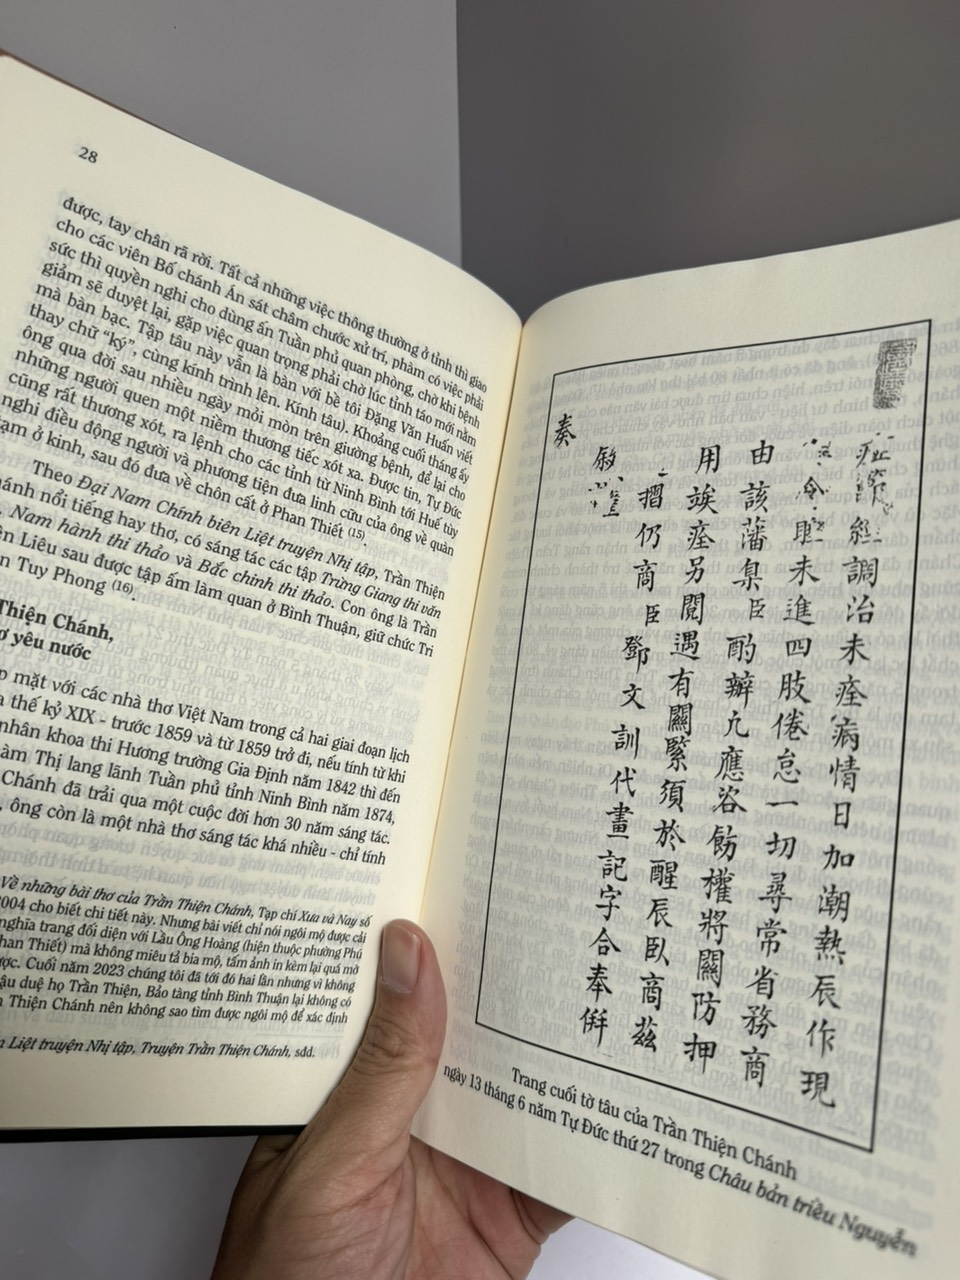 28
được, tay chân rã rời. Tất cả những việc thông thường ở tỉnh thì giao
cho các viên Bố chánh Án sát châm chước xử trí, phàm có việc phải
sức thì quyền nghi cho dùng ấn Tuần phủ quan phòng, chờ khi bệnh
giảm sẽ duyệt lại, gặp việc quan trọng phải chờ lúc tỉnh táo mới nằm
mà bàn bạc. Tập tâu này vẫn là bàn với bề tôi Đặng Văn Huấn viết
thay chữ “ký”, cùng kính trình lên. Kính tâu). Khoảng cuối tháng ấy
ông qua đời sau nhiều ngày mỏi mòn trên giường bệnh, để lại cho
những người quen một niềm thương tiếc xót xa. Được tin, Tự Đức
cũng rất thương xót, ra lệnh cho các tỉnh từ Ninh Bình tới Huế tùy
nghi điều động người và phương tiện đưa linh cữu của ông về quàn
tạm ở kinh, sau đó đưa về chôn cất ở Phan Thiết (15).
Theo Đại Nam Chính biên Liệt truyện Nhị tập, Trần Thiện
Chánh nổi tiếng hay thơ, có sáng tác các tập Trừng Giang thi văn
Nam hành thi thảo và Bắc chinh thi thảo. Con ông là Trần
Liêu sau được tập ấm làm quan ở Bình Thuận, giữ chức Tri
Tuy Phong (16).
Thiện Chánh,
yêu nước
mặt với các nhà thơ Việt Nam trong cả hai giai đoạn lịch
thế kỷ XIX - trước 1859 và từ 1859 trở đi, nếu tính từ khi
nhân khoa thi Hương trường Gia Định năm 1842 thì đến
làm Thị lang lãnh Tuần phủ tỉnh Ninh Bình năm 1874,
Chánh đã trải qua một cuộc đời hơn 30 năm sáng tác.
ông còn là một nhà thơ sáng tác khá nhiều - chỉ tính
Về những bài thơ của Trần Thiện Chánh, Tạp chí Xưa và Nay số
2004 cho biết chi tiết này. Nhưng bài viết chỉ nói ngôi mộ được cải
nghĩa trang đối diện với Lầu Ông Hoàng (hiện thuộc phường Phú
Phan Thiết) mà không miêu tả bia mộ, tấm ảnh in kèm lại quá mờ
Cuối năm 2023 chúng tôi đã tới đó hai lần nhưng vì không
hậu duệ họ Trần Thiện, Bảo tàng tỉnh Bình Thuận lại không có
Thiện Chánh nên không sao tìm được ngôi mộ để xác định
Liệt truyện Nhị tập, Truyện Trần Thiện Chánh, sđd.
調治未痊病情日加潮熱辰作現
未進四肢倦怠一切尋常省務商
由該藩臬臣酌辦凢應咨飭權將關防押
用竢痊另閱遇有關緊須於醒辰臥商茲
摺仍商臣鄧文訓代畫記字合奉俰
敍
奏
Trang cuối tờ tâu của Trần Thiện Chánh
ngày 13 tháng 6 năm Tự Đức thứ 27 trong Châu bản triều Nguyễn